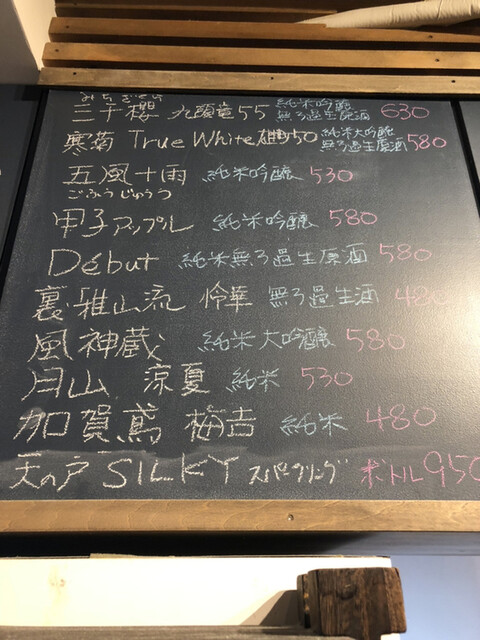 みちざくら
三千櫻 九頭竜55 純米吟醸 無ろ過生原酒 630
寒菊 True White 雄町50 純米大吟醸 無ろ過生原酒 580
五風十雨 純米吟醸 530
ごふうじゅうう
甲子アップル 純米吟醸 580
Début 純米無ろ過生原酒 580
裏・雅山流 怜華 無ろ過生酒 480
風神蔵 純米大吟醸 580
月山 涼夏 純米 530
加賀鳶 梅吉 純米 480
天の戸 SILKY スパークリング ボトル950